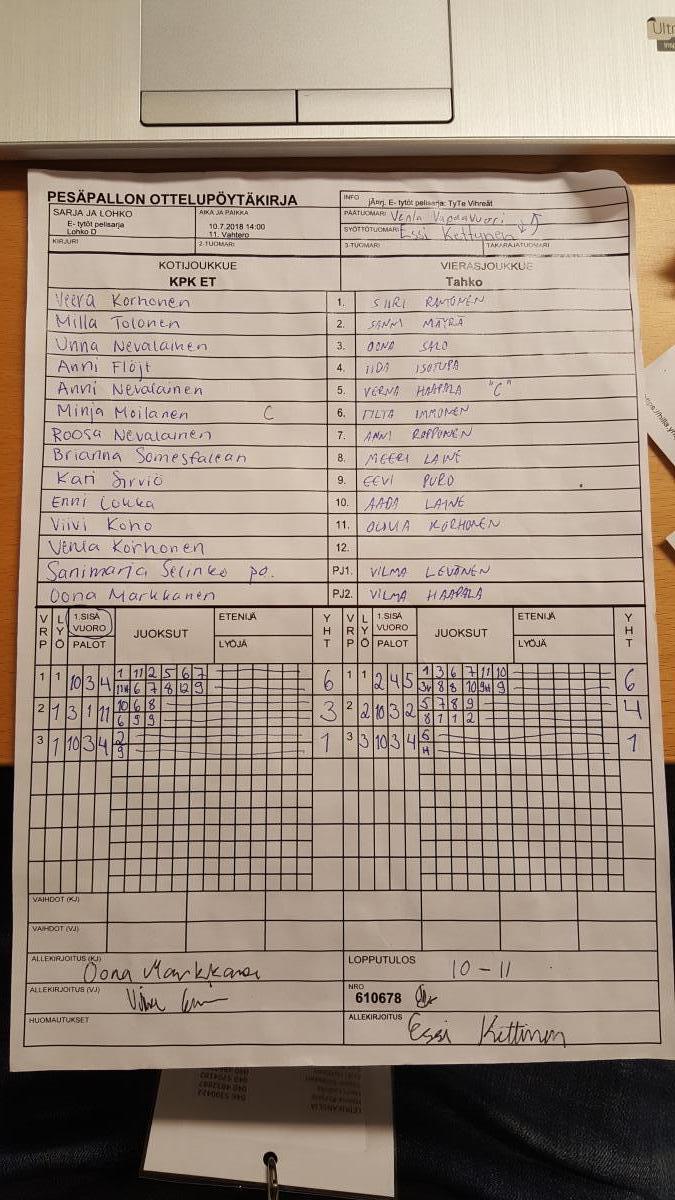 Ultr
PESÄPALLON OTTELUPÖYTÄKIRJA
INFO jÄrrj. E- tytöt pelisarja: TyTe Vihreät
SARJA JA LOHKO
E- tytöt pelisarja
Lohko D
AIKA JA PAIKKA
10.7.2018 14:00
11. Vahtero
PÄÄTUOMARI Venla Vapaavuori
SYÖTTÖTUOMARI Essi Kettunen
KIRJURI 2-TUOMARI 3-TUOMARI TAKARAJATUOMARI
KOTIJOUKKUE VIERASJOUKKUE
KPK ET Tahko
Veera Korhonen 1. SIIRI RANTONEN
Milla Tolonen 2. SANNI MÄYRÄ
Unna Nevalainen 3. OONA SALO
Anni Flöjt 4. IIDA ISOTUPA
Anni Nevalainen 5. VERNA HAAPALA "C"
Minja Moilanen C 6. IMMONEN
Roosa Nevalainen 7. ANNI ROPPONEN
Brianna Somesfalean 8. MEERI LAINE
Kari Sirviö 9. EEVI PURO
Enni Loukka 10. AADA LAINE
Viivi Koho 11. OLIVIA KORHONEN
Venla Korhonen 12.
Sanimarja Selinko po. PJ1. VILMA LEVÖNEN
Oona Markkanen PJ2. VILMA HAAPALA
VRP LYÖ 1.SISÄ VUORO PALOT JUOKSUT ETENIJÄ LYÖJÄ YHT VRP LYÖ 1.SISÄ VUORO PALOT JUOKSUT ETENIJÄ LYÖJÄ YHT
1 1 10 3 4 1 11 2 5 6 7 6 1 1 2 4 5 1 3 6 7 11 10 6
11H 6 7 8 12 9 3V 8 8 10 9H 9
2 1 3 1 11 10 6 8 3 2 2 10 3 2 5 7 8 9 4
6 9 9 8 1 1 2
3 1 10 3 4 2 1 3 3 10 3 4 6 1
9 H
VAIHDOT (KJ)
VAIHDOT (VJ)
ALLEKIRJOITUS (KJ) Oona Markkanen LOPPUTULOS 10-11
ALLEKIRJOITUS (VJ) NRO 610678
HUOMAUTUKSET ALLEKIRJOITUS Essi Kettunen